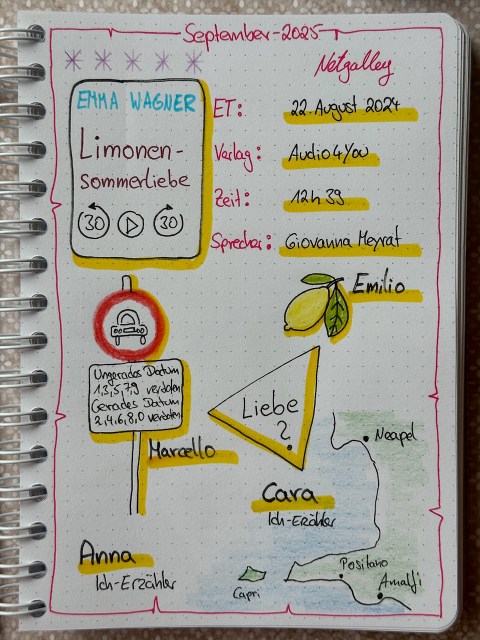 September-2025
Netzgalley
EMMA WAGNER
Limonen-
sommerliebe
30 30
ET: 22. August 2024
Verlag: Audio4You
Zeit: 12h 39
Sprecher: Giovanna Meyrat
Emilio
Ungerades Datum
1,3,5,7,9 verboten
Gerades Datum
2,4,6,8,0 verboten
Marcello
Liebe
?
Neapel
Cara
Ich-Erzähler
Anna
Ich-Erzähler
Capri
Positano
Amalfi